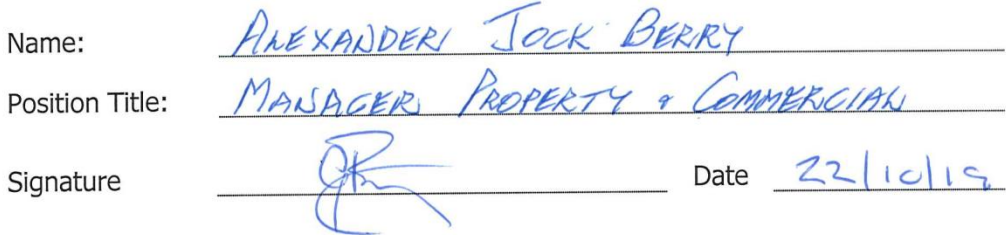 Name: ALEXANDER JOCK BERRY
Position Title: MANAGER PROPERTY & COMMERCIAL
Signature Date 22/10/19